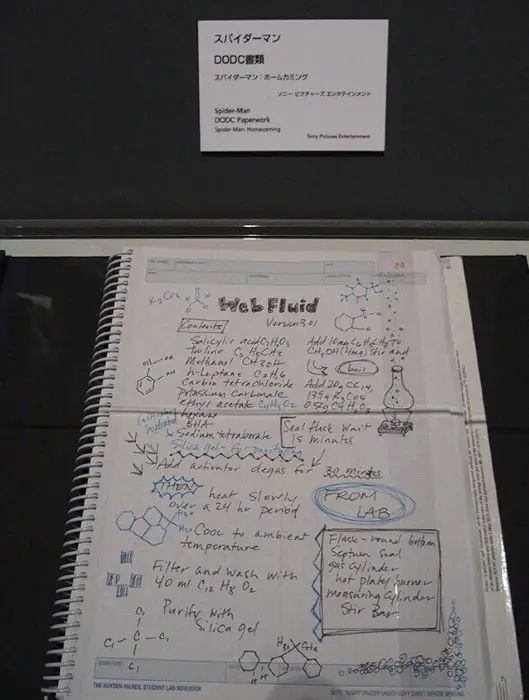 スパイダーマン
DODC書類
スパイダーマン：ホームカミング
ソニー・ピクチャーズ エンタテインメント
Spider-Man
DODC Paperwork
Spider-Man: Homecoming
Sony Pictures Entertainment
24
K2CO3
Web Fluid
Version 3.01
Contents
Salicylic acid C7H6O3
Touline C6H5CH3
Methanol CH3OH
n-Heptane
Carbon tetrachloride
Potassium Carbonate
ethyl acetate C4H8O2
hexane
BHA
Sodium tetraborate
Silica gel - for purifying
Add 10mg C6H5CH3 to
CH3OH (4mg) Stir and
boil
Add 20g CCl4,
139g K2CO3
Seal flask wait
15 minutes
Add activator degas for 30 minutes
THEN
heat slowly
over a 24 hr period
Cool to ambient
temperature
Filter and wash with
40 ml C12 H8 O2
Purify with
Silica gel
FROM
LAB
Flask - round bottom
Septum Seal
gas cylinder
hot plate/burner
measuring cylinder
Stir Bar
Cl
Cl C Cl
Cl
THE HAYDEN ANIMAL STUDENT LAB NOTEBOOK